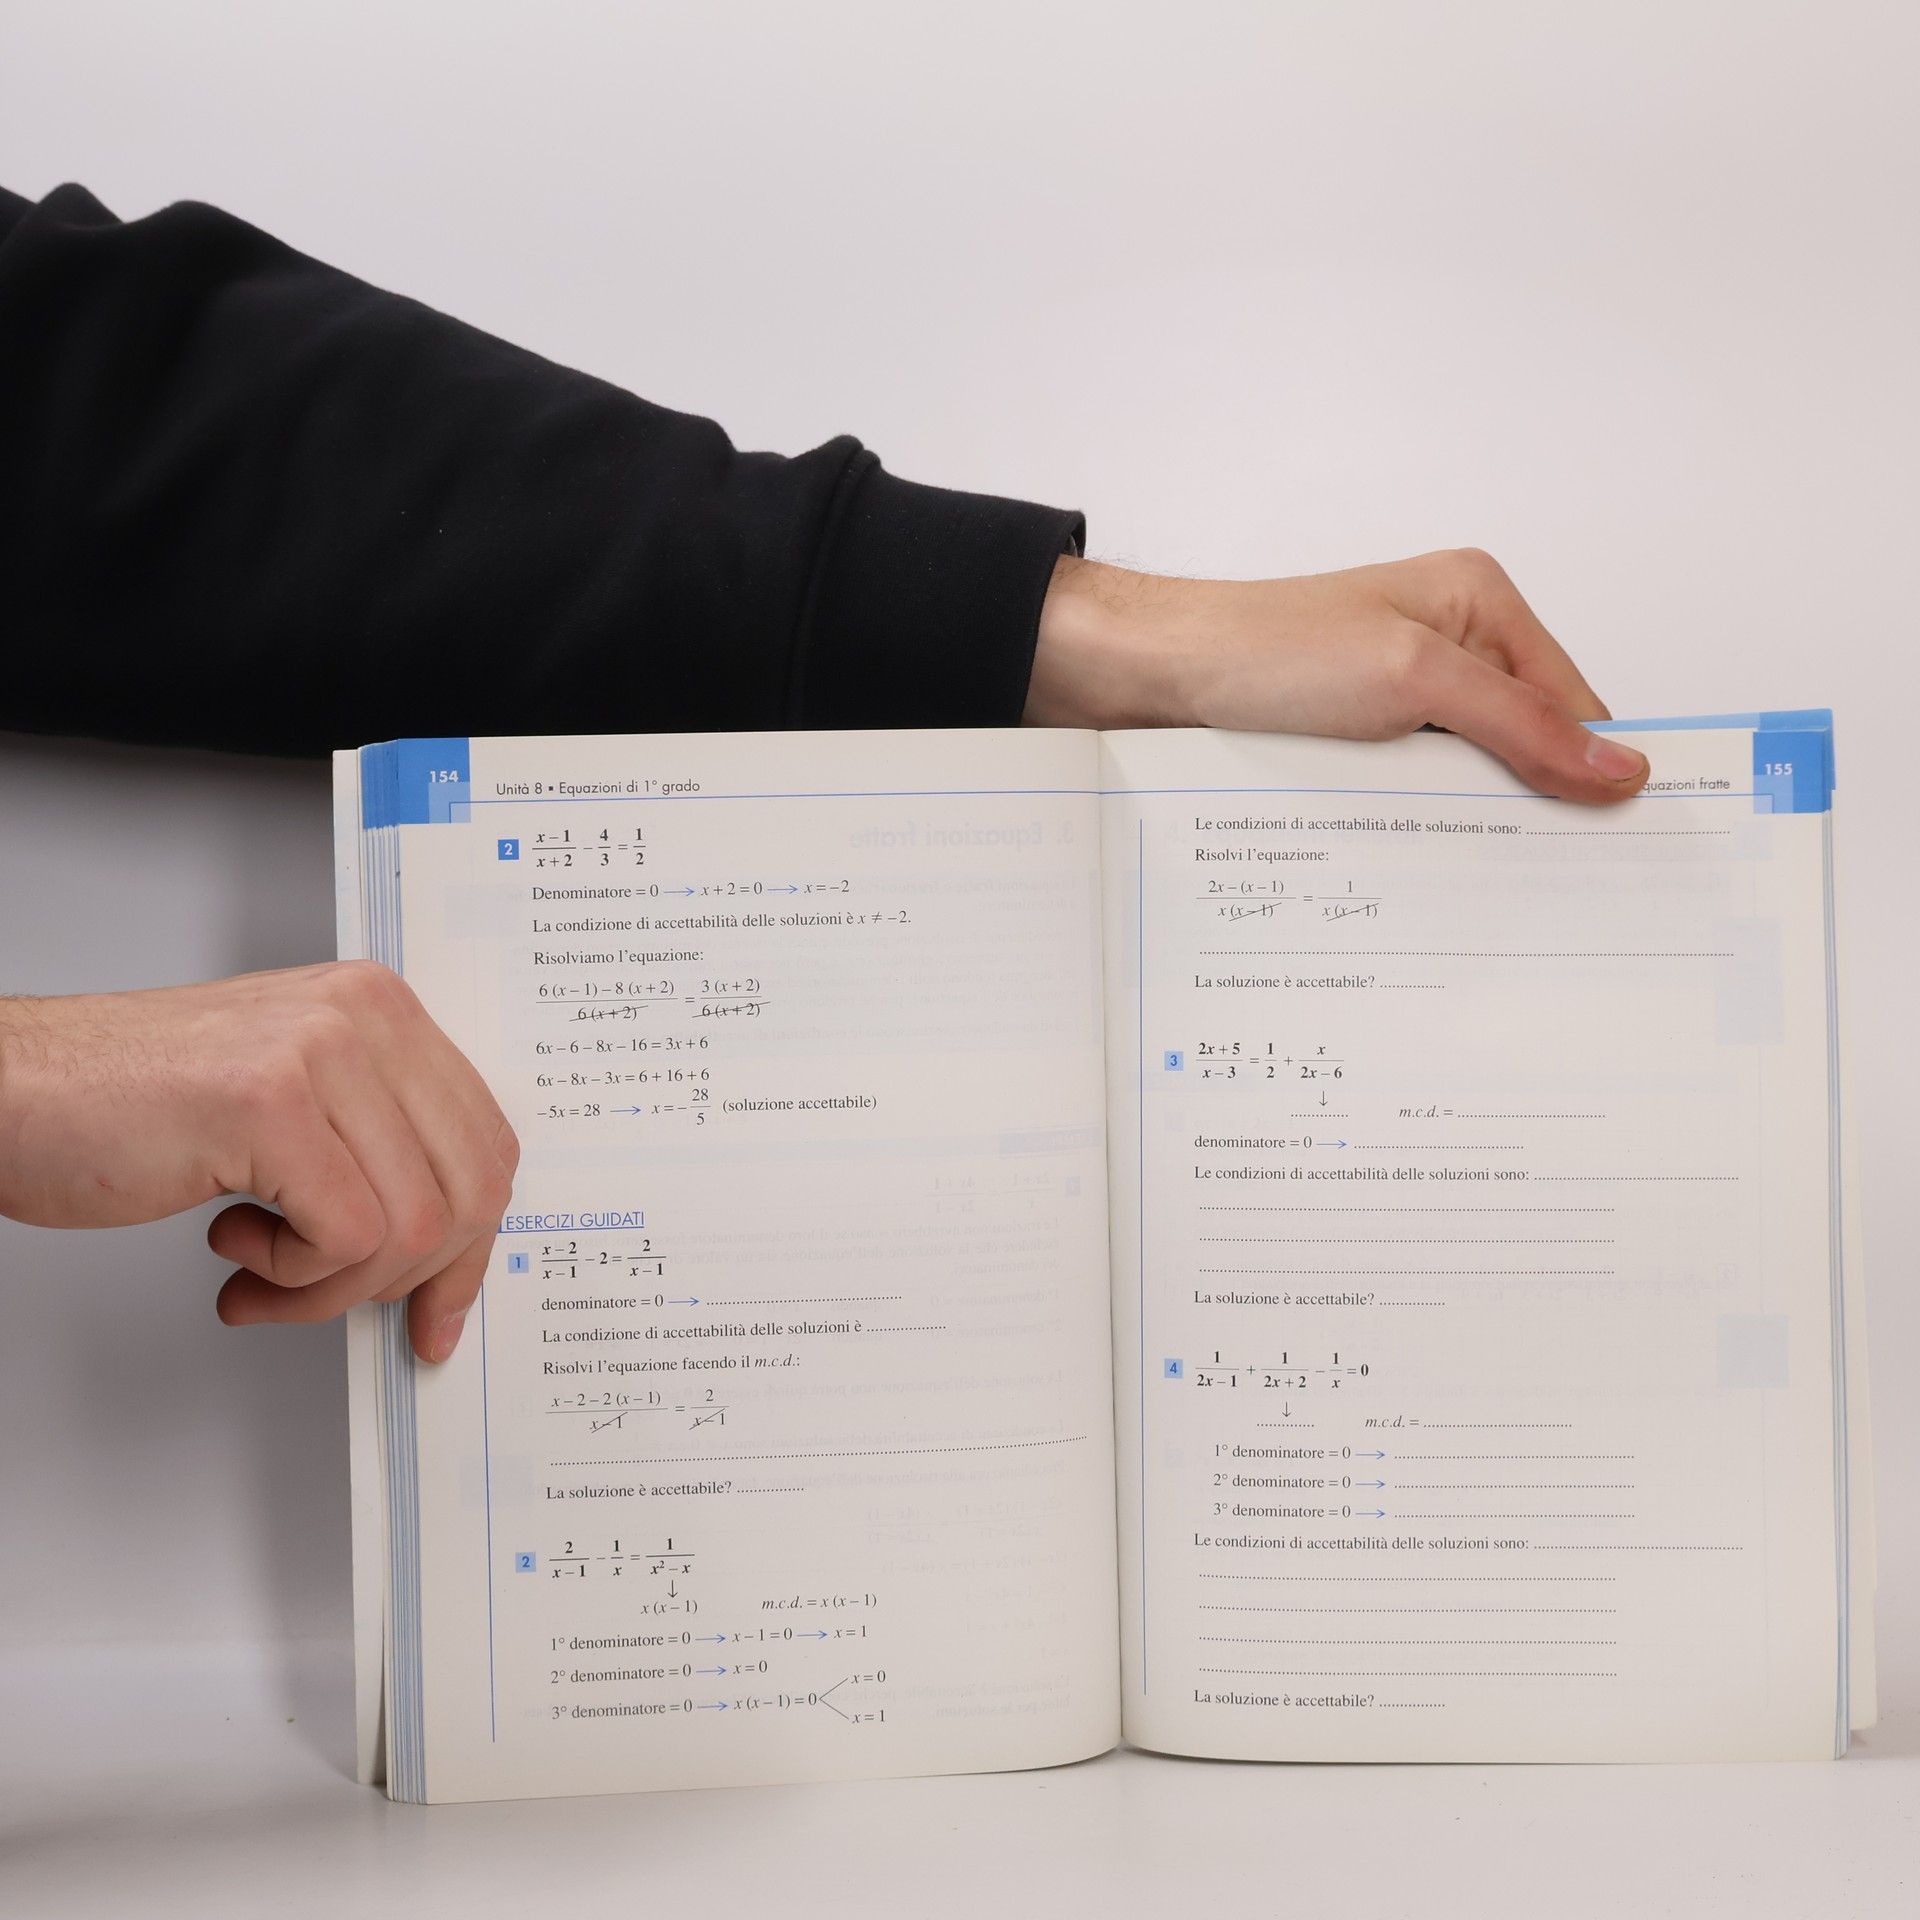 154
Unità 8 ▪ Equazioni di 1° grado
2 (x – 1)/(x + 2) – 4/3 = 1/2
Denominatore = 0 → x + 2 = 0 → x = –2
La condizione di accettabilità delle soluzioni è x ≠ –2.
Risolviamo l'equazione:
(6 (x – 1) – 8 (x + 2))/(6 (x + 2)) = (3 (x + 2))/(6 (x + 2))
6x – 6 – 8x – 16 = 3x + 6
6x – 8x – 3x = 6 + 16 + 6
–5x = 28 → x = – 28/5 (soluzione accettabile)
ESERCIZI GUIDATI
1 (x – 2)/(x – 1) – 2 = 2/(x – 1)
denominatore = 0 → ....................
La condizione di accettabilità delle soluzioni è ....................
Risolvi l'equazione facendo il m.c.d.:
(x – 2 – 2 (x – 1))/(x – 1) = 2/(x – 1)
La soluzione è accettabile? ................
2 2/(x – 1) – 1/x = 1/(x² – x)
↓
x (x – 1) m.c.d. = x (x – 1)
1° denominatore = 0 → x – 1 = 0 → x = 1
2° denominatore = 0 → x = 0
3° denominatore = 0 → x (x – 1) = 0 x = 0
x = 1
quazioni fratte
155
Le condizioni di accettabilità delle soluzioni sono: ....................
Risolvi l'equazione:
(2x – (x – 1))/(x (x – 1)) = 1/(x (x – 1))
La soluzione è accettabile? ................
3 (2x + 5)/(x – 3) = 1/2 + x/(2x – 6)
↓
.............. m.c.d. = ....................
denominatore = 0 → ....................
Le condizioni di accettabilità delle soluzioni sono: ....................
La soluzione è accettabile? ................
4 1/(2x – 1) + 1/(2x + 2) – 1/x = 0
↓
.............. m.c.d. = ....................
1° denominatore = 0 → ....................
2° denominatore = 0 → ....................
3° denominatore = 0 → ....................
Le condizioni di accettabilità delle soluzioni sono: ....................
La soluzione è accettabile? ................